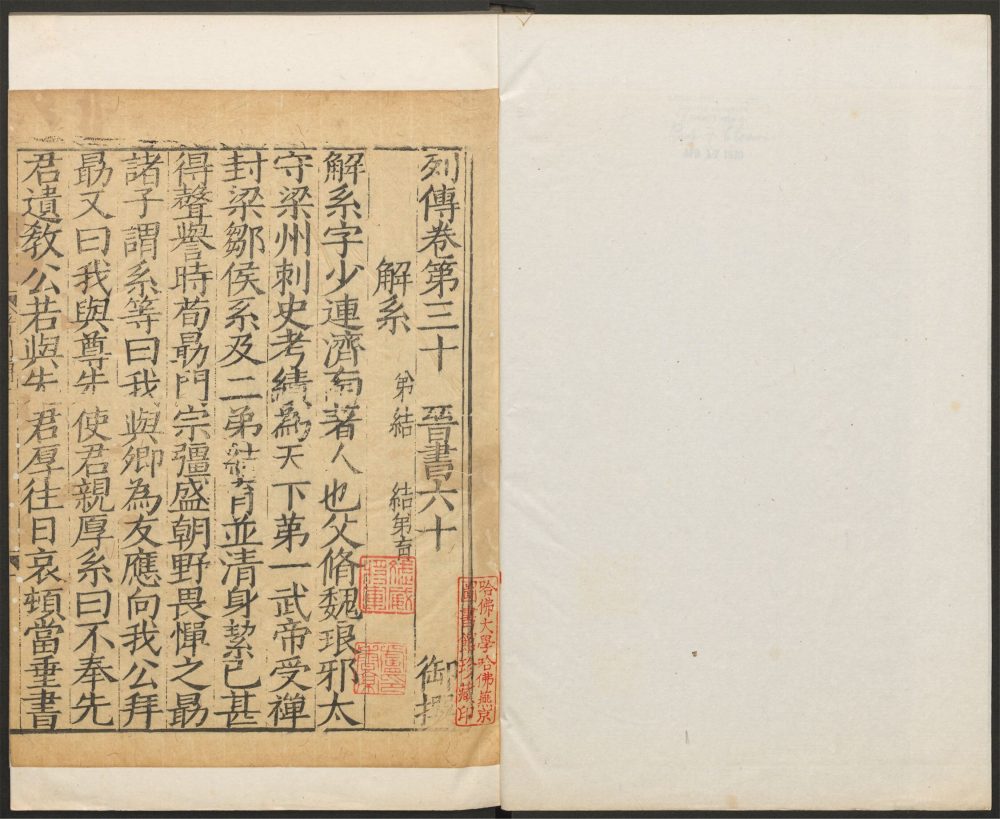 列傳卷第三十 晉書六十 御撰
解系 弟結 結弟育
解系字少連濟南著人也父脩魏琅邪太
守梁州刺史考績為天下第一武帝受禪
封梁鄒侯系及二弟結育並清身絜己甚
得聲譽時荀勗門宗彊盛朝野畏憚之勗
諸子謂系等曰我與卿為友應向我公拜
勗又曰我與尊先使君親厚系曰不奉先
君遺教公若與先君厚往日哀頓當垂書
哈佛大學哈佛燕京
圖書館珍藏印